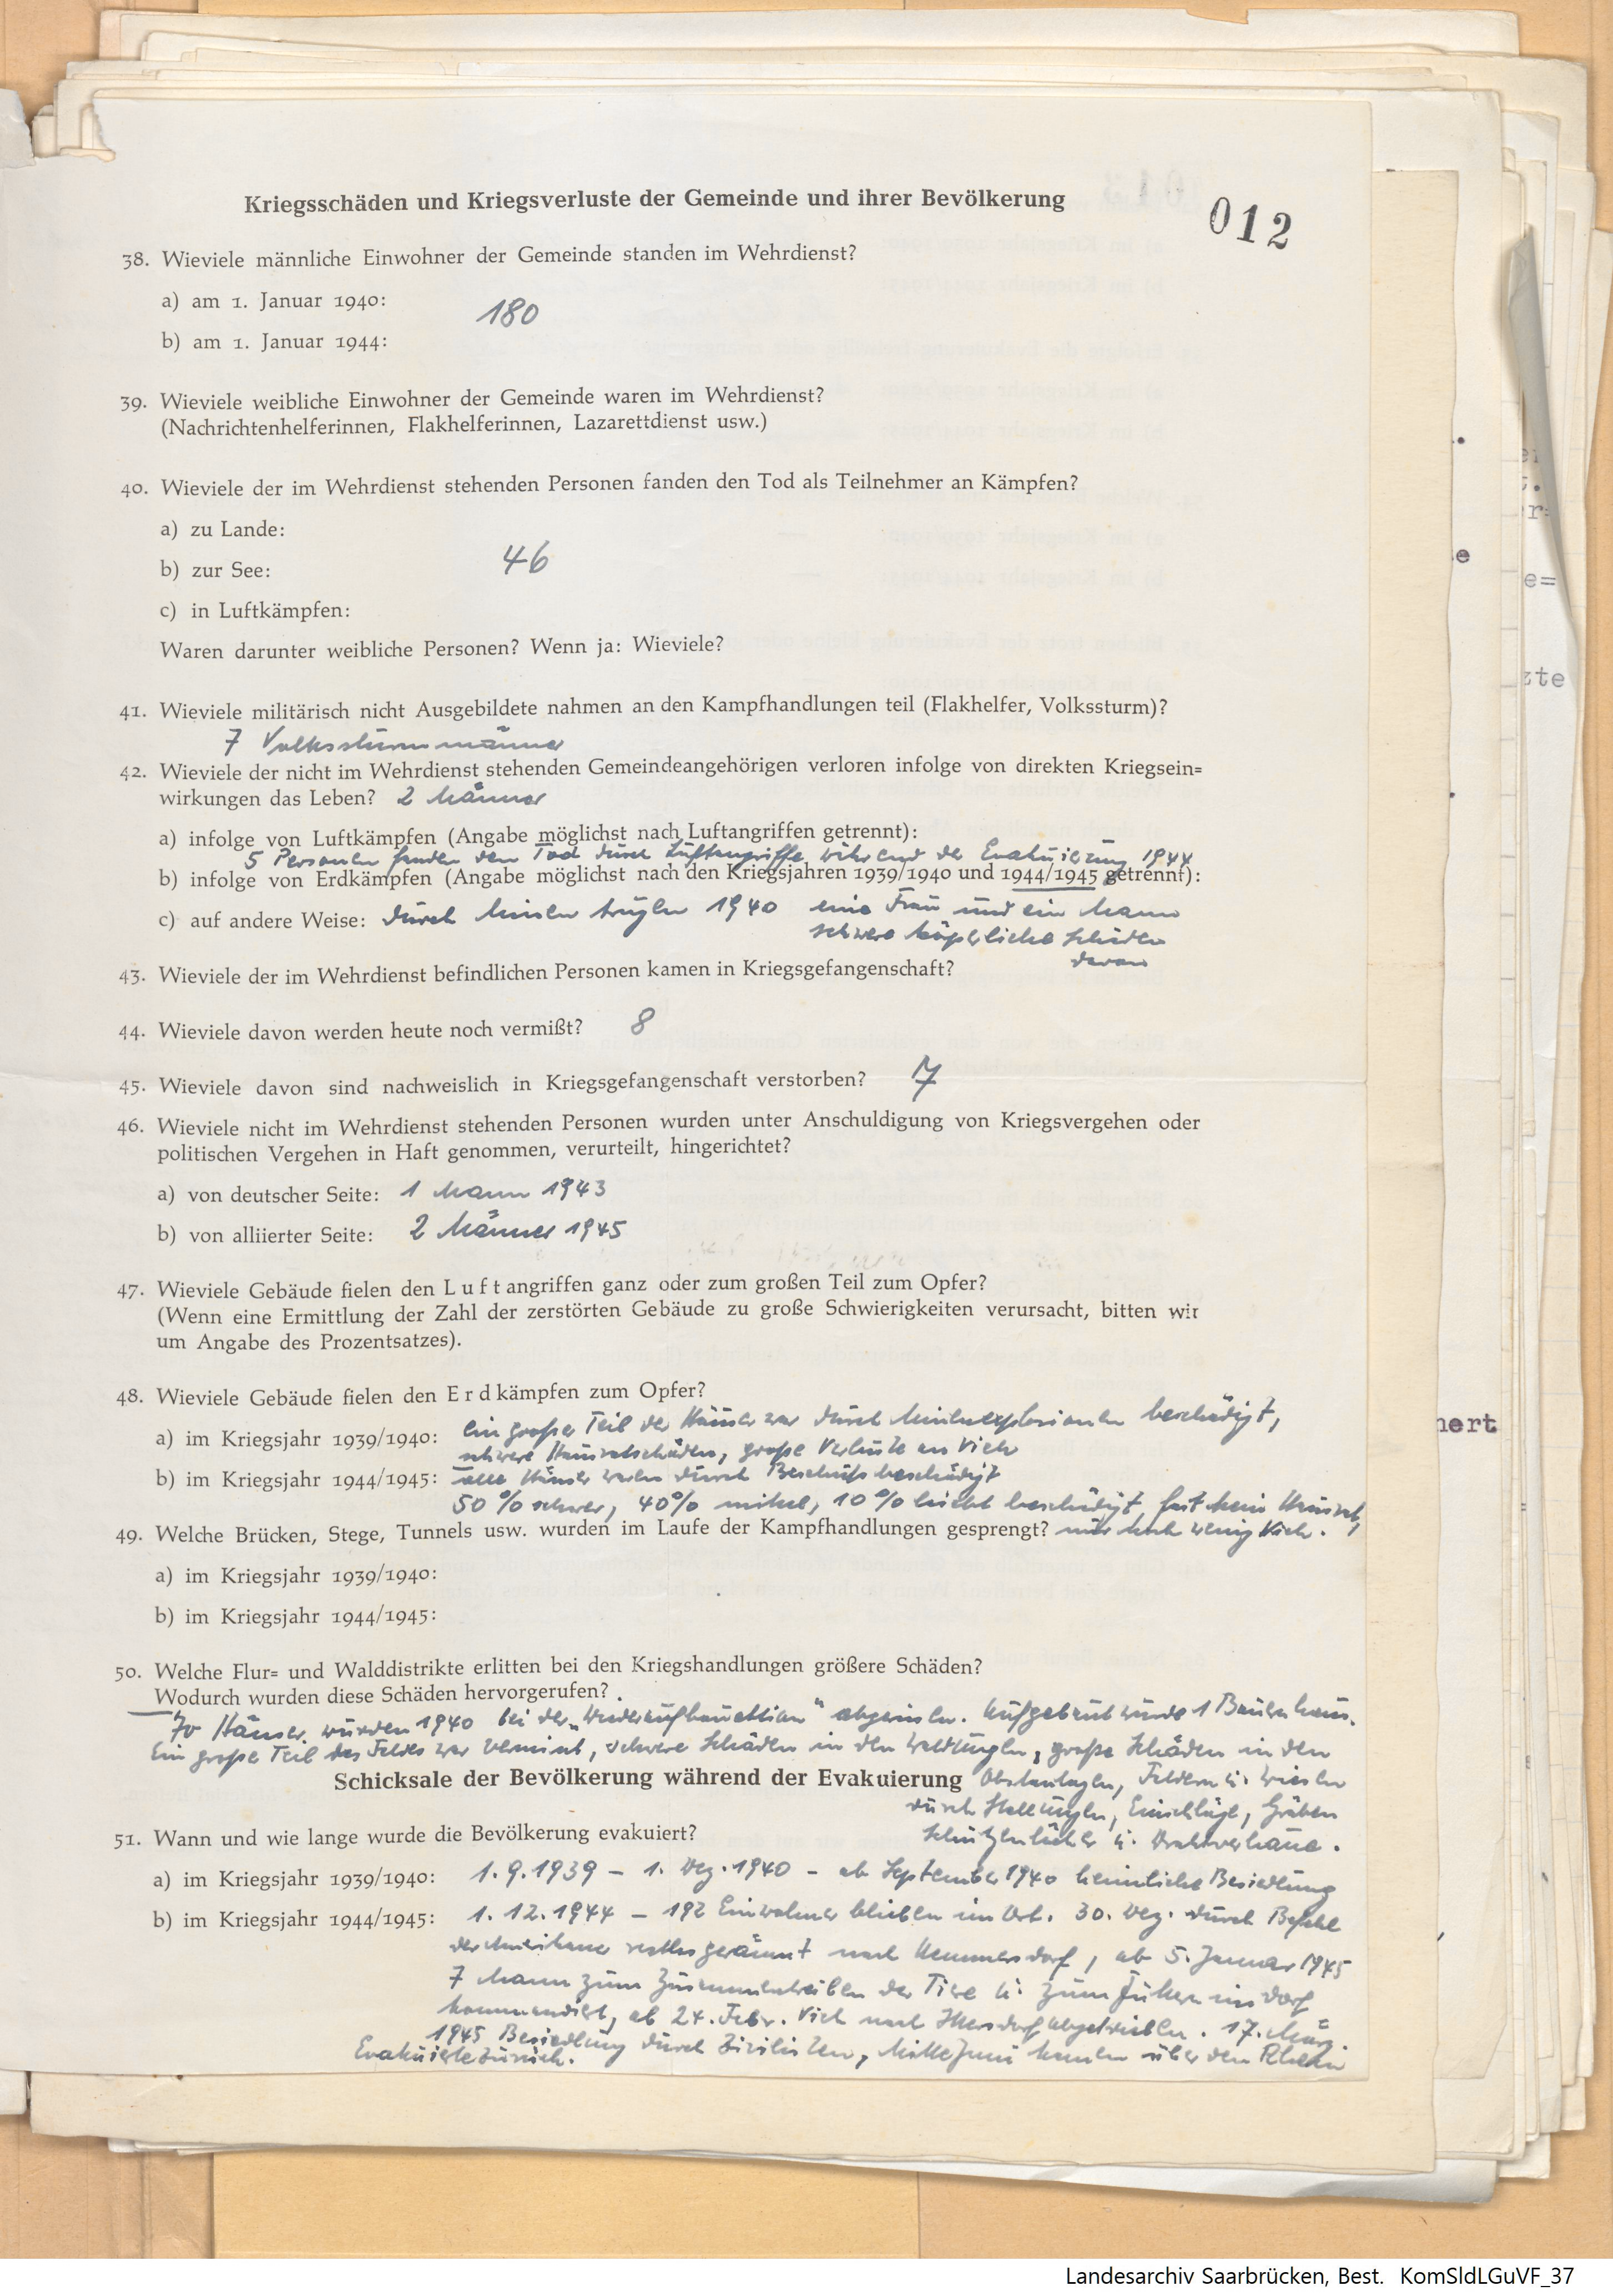 Kriegsschäden und Kriegsverluste der Gemeinde und ihrer Bevölkerung
012
38. Wieviele männliche Einwohner der Gemeinde standen im Wehrdienst?
a) am 1. Januar 1940:
180
b) am 1. Januar 1944:
39. Wieviele weibliche Einwohner der Gemeinde waren im Wehrdienst?
(Nachrichtenhelferinnen, Flakhelferinnen, Lazarettdienst usw.)
40. Wieviele der im Wehrdienst stehenden Personen fanden den Tod als Teilnehmer an Kämpfen?
a) zu Lande:
b) zur See: 46
c) in Luftkämpfen:
Waren darunter weibliche Personen? Wenn ja: Wieviele?
41. Wieviele militärisch nicht Ausgebildete nahmen an den Kampfhandlungen teil (Flakhelfer, Volkssturm)?
7 Volkssturmmänner
42. Wieviele der nicht im Wehrdienst stehenden Gemeindeangehörigen verloren infolge von direkten Kriegsein=
wirkungen das Leben? 2 Männer
a) infolge von Luftkämpfen (Angabe möglichst nach Luftangriffen getrennt):
5 Personen fanden den Tod durch Luftangriffe während der Evakuierung 1944
b) infolge von Erdkämpfen (Angabe möglichst nach den Kriegsjahren 1939/1940 und 1944/1945 getrennt):
c) auf andere Weise: durch Minen trugen 1940 eine Frau und ein Mann
schwere körperliche Schäden
davon
43. Wieviele der im Wehrdienst befindlichen Personen kamen in Kriegsgefangenschaft?
44. Wieviele davon werden heute noch vermißt? 8
45. Wieviele davon sind nachweislich in Kriegsgefangenschaft verstorben? 7
46. Wieviele nicht im Wehrdienst stehenden Personen wurden unter Anschuldigung von Kriegsvergehen oder
politischen Vergehen in Haft genommen, verurteilt, hingerichtet?
a) von deutscher Seite: 1 Mann 1943
b) von alliierter Seite: 2 Männer 1945
47. Wieviele Gebäude fielen den Luftangriffen ganz oder zum großen Teil zum Opfer?
(Wenn eine Ermittlung der Zahl der zerstörten Gebäude zu große Schwierigkeiten verursacht, bitten wir
um Angabe des Prozentsatzes).
48. Wieviele Gebäude fielen den Erdkämpfen zum Opfer?
a) im Kriegsjahr 1939/1940: ein großer Teil der Häuser war durch Minenexplosionen beschädigt,
schwere Hausratschäden, große Verluste an Vieh
b) im Kriegsjahr 1944/1945: alle Häuser waren durch Beschuß beschädigt
50 % schwer, 40 % mittel, 10 % leicht beschädigt, fast kein Hausrat,
49. Welche Brücken, Stege, Tunnels usw. wurden im Laufe der Kampfhandlungen gesprengt? nur noch wenig Vieh.
a) im Kriegsjahr 1939/1940:
b) im Kriegsjahr 1944/1945:
50. Welche Flur= und Walddistrikte erlitten bei den Kriegshandlungen größere Schäden?
Wodurch wurden diese Schäden hervorgerufen?
70 Häuser wurden 1940 bei der „Wiederaufbauaktion" abgerissen. Aufgebaut wurde 1 Bauernhaus.
Ein große Teil des Feldes war vermint, schwere Schäden in den Waldungen, große Schäden in den
Schicksale der Bevölkerung während der Evakuierung Obstanlagen, Feldern u. Wiesen
durch Stellungen, Einschläge, Gräben
Schützenlöcher u. Drahtverhaue.
51. Wann und wie lange wurde die Bevölkerung evakuiert?
a) im Kriegsjahr 1939/1940: 1.9.1939 – 1. Dez. 1940 – ab September 1940 heimliche Besiedlung
b) im Kriegsjahr 1944/1945: 1.12.1944 – 192 Einwohner blieben im Ort. 30. Dez. durch Befehl
der Amerikaner restlos geräumt nach Hemmersdorf, ab 5. Januar 1945
7 Mann zum Zusammentreiben der Tiere u. zum Füttern ins Dorf
kommandiert, ab 24. Febr. Vieh nach Ihersdorf abgetrieben. 17. März
1945 Besiedlung durch Zivilisten, Mitte Juni kamen über den Rhein
Evakuierte zurück.
e
e=
zte
nert
Landesarchiv Saarbrücken, Best. KomSldLGuVF_37